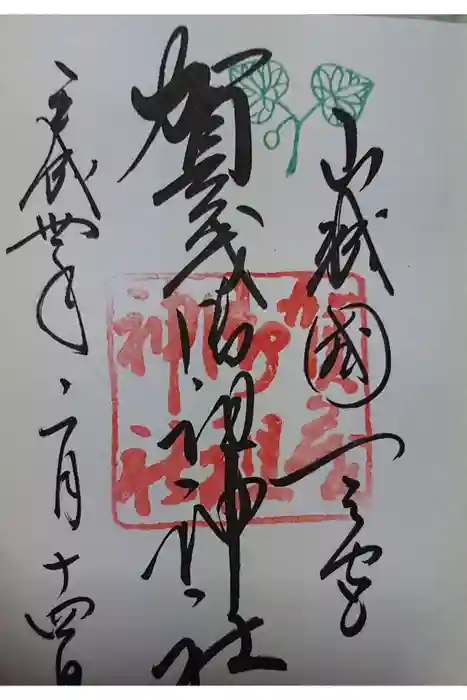 山城國一之宮
賀茂御祖神社
平成丗年二月十四日
賀茂御祖神社